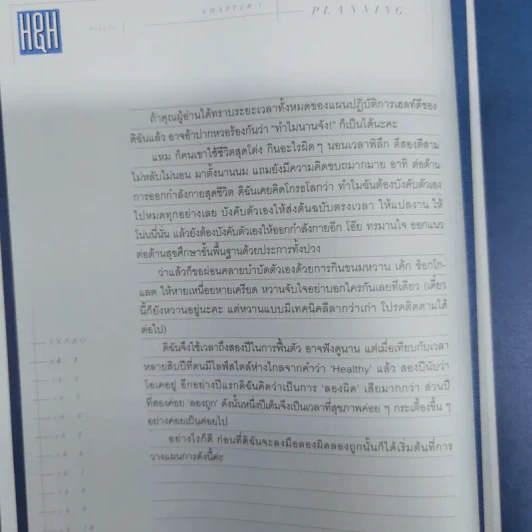 H&H
CHAPTER 1
PLANNING
ถ้าคุณผู้อ่านได้ทราบระยะเวลาทั้งหมดของแผนปฏิบัติการเฮลท์ตีของ
ดิฉันแล้ว อาจอ้าปากหวอร้องกันว่า “ทำไมนานจัง!” ก็เป็นได้นะคะ
แหม ก็คนเขาใช้ชีวิตสุดโต่ง กินอะไรผิด ๆ นอนเวลาพิลึก ตีสองตีสาม
ไม่หลับไม่นอน มาตั้งนานนม แถมยังมีความคิดขบถมากมาย อาทิ ต่อต้าน
การออกกำลังกายสุดชีวิต ดิฉันเคยคิดโกรธโลกว่า ทำไมฉันต้องบังคับตัวเอง
ไปหมดทุกอย่างเลย บังคับตัวเองให้ส่งต้นฉบับตรงเวลา ให้แปลงาน ให้
โน่นนี่นั่น แล้วยังต้องบังคับตัวเองให้ออกกำลังกายอีก โอ๊ย ทรมานใจ ออกแนว
ต่อต้านสุขศึกษาขั้นพื้นฐานด้วยประการทั้งปวง
ว่าแล้วก็ขอผ่อนคลายบำบัดตัวเองด้วยการกินขนมหวาน เค้ก ช็อกโก-
แลต ให้หายเหนื่อยหายเครียด หวานจับใจอย่าบอกใครกันเลยทีเดียว (เดี๋ยว
นี้ก็ยังหวานอยู่นะคะ แต่หวานแบบมีเทคนิคลีลากว่าเก่า โปรดติดตามได้
ต่อไป)
ดิฉันจึงใช้เวลาถึงสองปีในการฟื้นตัว อาจฟังดูนาน แต่เมื่อเทียบกับเวลา
หลายสิบปีที่ตนมีไลฟ์สไตล์ห่างไกลจากคำว่า ‘Healthy’ แล้ว สองปีนับว่า
โอเคอยู่ อีกอย่างปีแรกดิฉันคิดว่าเป็นการ ‘ลองผิด’ เสียมากกว่า ส่วนปี
ที่สองค่อย ‘ลองถูก’ ดังนั้นหนึ่งปีเต็มจึงเป็นเวลาที่สุขภาพค่อย ๆ กระเตื้องขึ้น ๆ
อย่างค่อยเป็นค่อยไป
อย่างไรก็ดี ก่อนที่ดิฉันจะลงมือลองผิดลองถูกนั้นก็ได้เริ่มต้นที่การ
วางแผนการดังนี้ค่ะ
INTRO